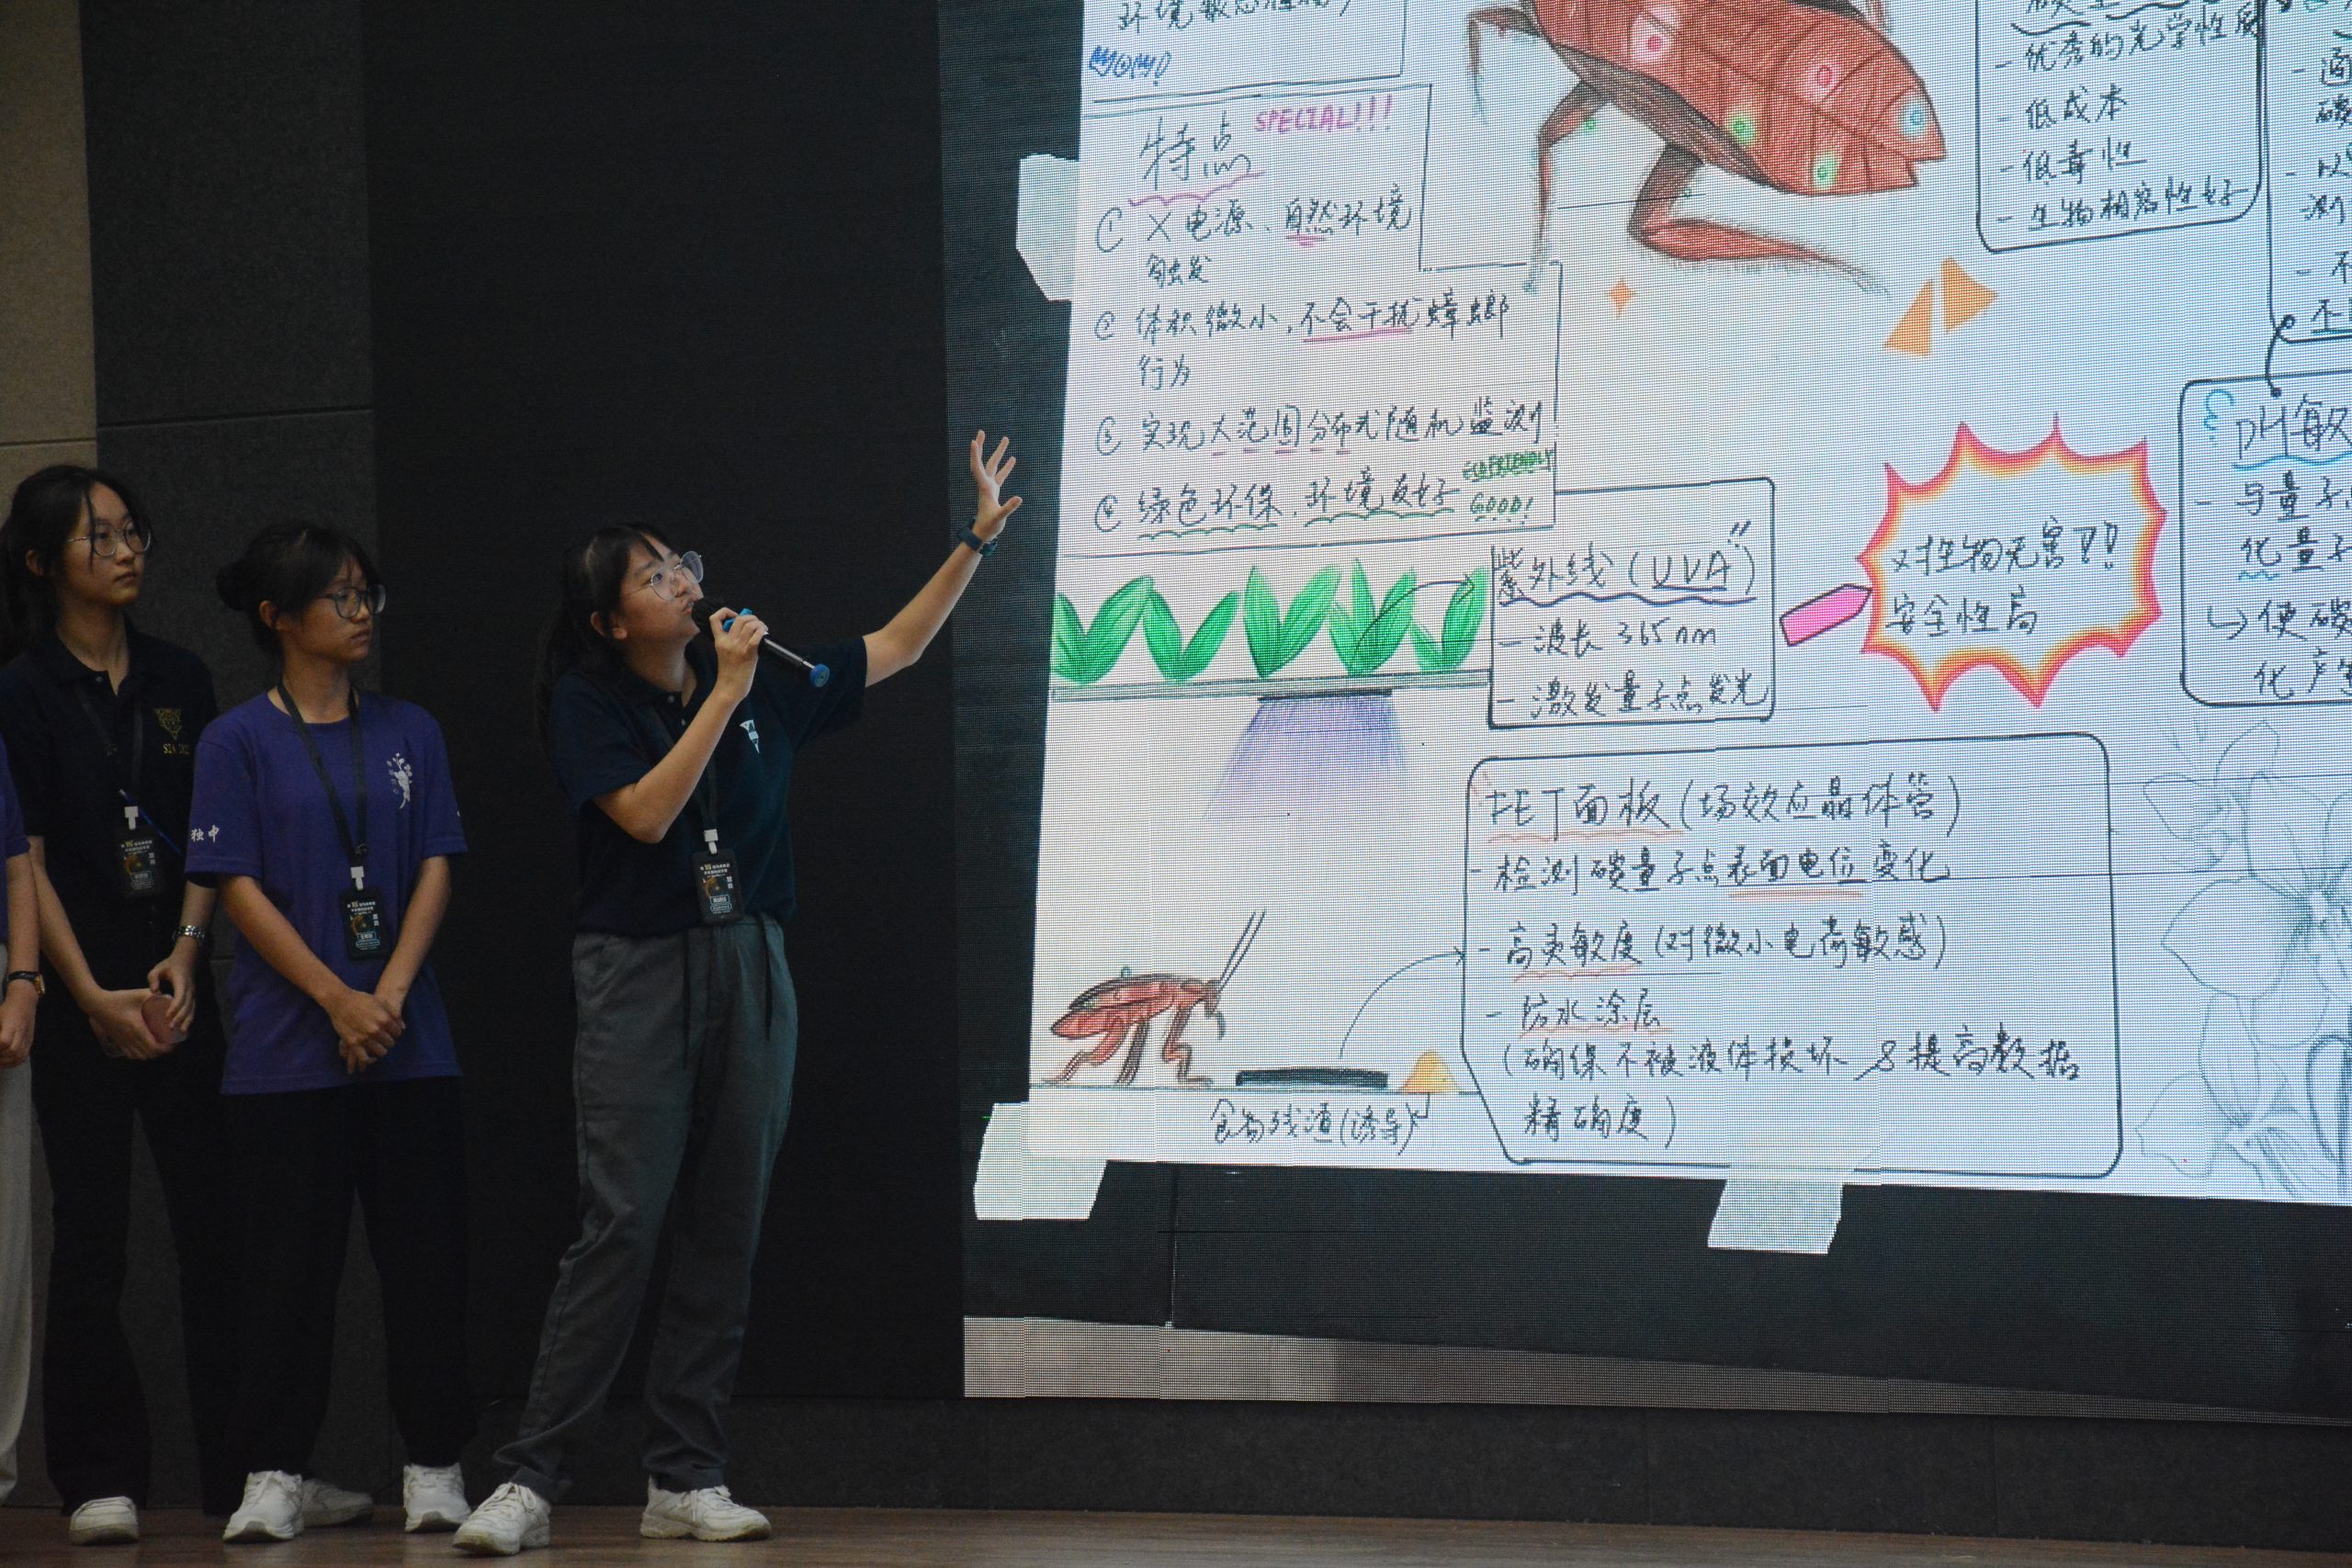 环境敏感性物
WOW!
特点 SPECIAL!!!
① X 电源、自然环境
触发
② 体积微小，不会干扰蟑螂
行为
③ 实现大范围分布式随机监测
④ 绿色环保、环境友好 ECOFRIENDLY
GOOD!
- 优秀的光学性质
- 低成本
- 低毒性
- 生物相容性好
紫外线 (UVA)
- 波长 365nm
- 激发量子点发光
对生物无害??!
安全性高
PH敏
- 与量子
化量子
↳ 使碳
化产生
FET面板 (场效应晶体管)
- 检测碳量子点表面电位变化
- 高灵敏度 (对微小电荷敏感)
- 防水涂层
(确保不被液体损坏 & 提高数据
精确度)
食物残渣 (诱导)
独中